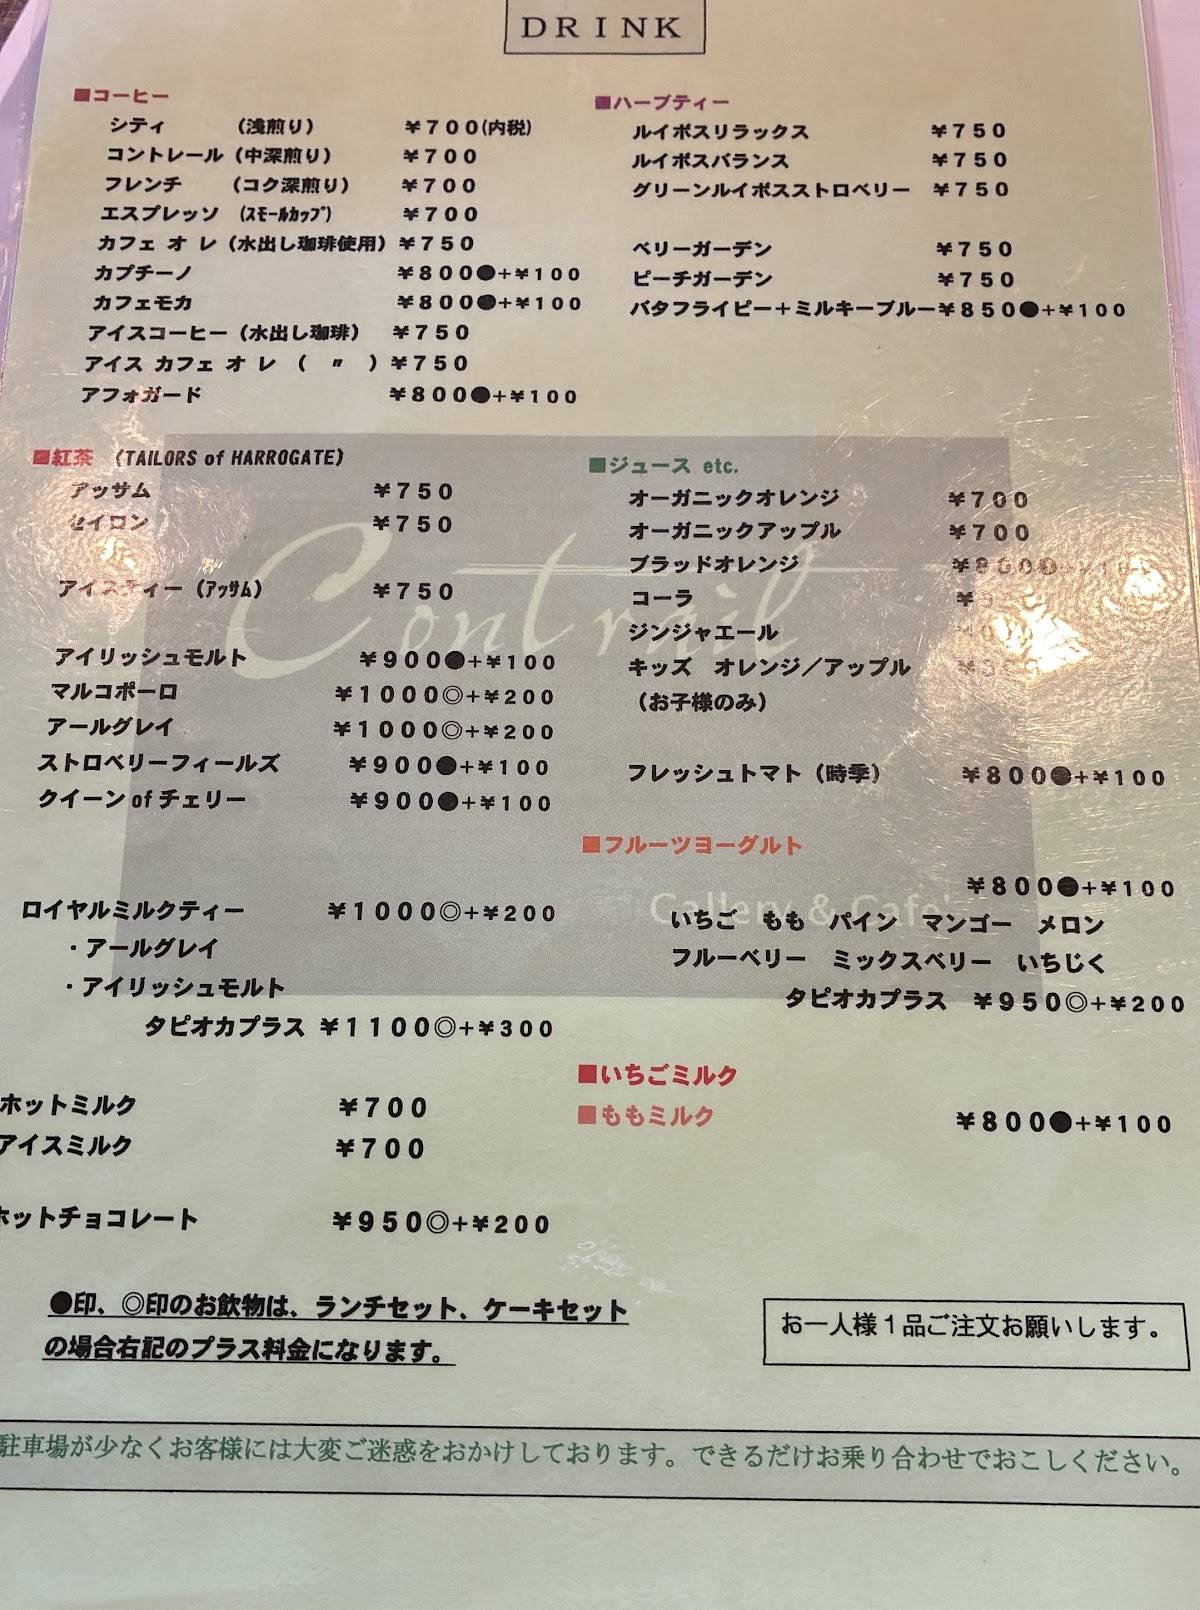 DRINK
■コーヒー
シティ (浅煎り) ￥700(内税)
コントレール (中深煎り) ￥700
フレンチ (コク深煎り) ￥700
エスプレッソ (ｽﾓｰﾙｶｯﾌﾟ) ￥700
カフェ オ レ (水出し珈琲使用) ￥750
カプチーノ ￥800●+￥100
カフェモカ ￥800●+￥100
アイスコーヒー (水出し珈琲) ￥750
アイス カフェ オ レ ( 〃 ) ￥750
アフォガード ￥800●+￥100
■紅茶 (TAILORS of HARROGATE)
アッサム ￥750
セイロン ￥750
アイスティー (ｱｯｻﾑ) ￥750
アイリッシュモルト ￥900●+￥100
マルコポーロ ￥1000◎+￥200
アールグレイ ￥1000◎+￥200
ストロベリーフィールズ ￥900●+￥100
クイーン of チェリー ￥900●+￥100
ロイヤルミルクティー ￥1000◎+￥200
・アールグレイ
・アイリッシュモルト
タピオカプラス ￥1100◎+￥300
ホットミルク ￥700
アイスミルク ￥700
ホットチョコレート ￥950◎+￥200
■ハーブティー
ルイボスリラックス ￥750
ルイボスバランス ￥750
グリーンルイボスストロベリー ￥750
ベリーガーデン ￥750
ピーチガーデン ￥750
バタフライピー＋ミルキーブルー ￥850●+￥100
■ジュース etc.
オーガニックオレンジ ￥700
オーガニックアップル ￥700
ブラッドオレンジ
コーラ
ジンジャエール
キッズ オレンジ／アップル
(お子様のみ)
フレッシュトマト (時季) ￥800●+￥100
■フルーツヨーグルト
￥800●+￥100
いちご もも パイン マンゴー メロン
フルーベリー ミックスベリー いちじく
タピオカプラス ￥950◎+￥200
■いちごミルク
■ももミルク ￥800●+￥100
Contrail
Gallery & Cafe'
●印、◎印のお飲物は、ランチセット、ケーキセット
の場合右記のプラス料金になります。
お一人様１品ご注文お願いします。
駐車場が少なくお客様には大変ご迷惑をおかけしております。できるだけお乗り合わせでおこしください。